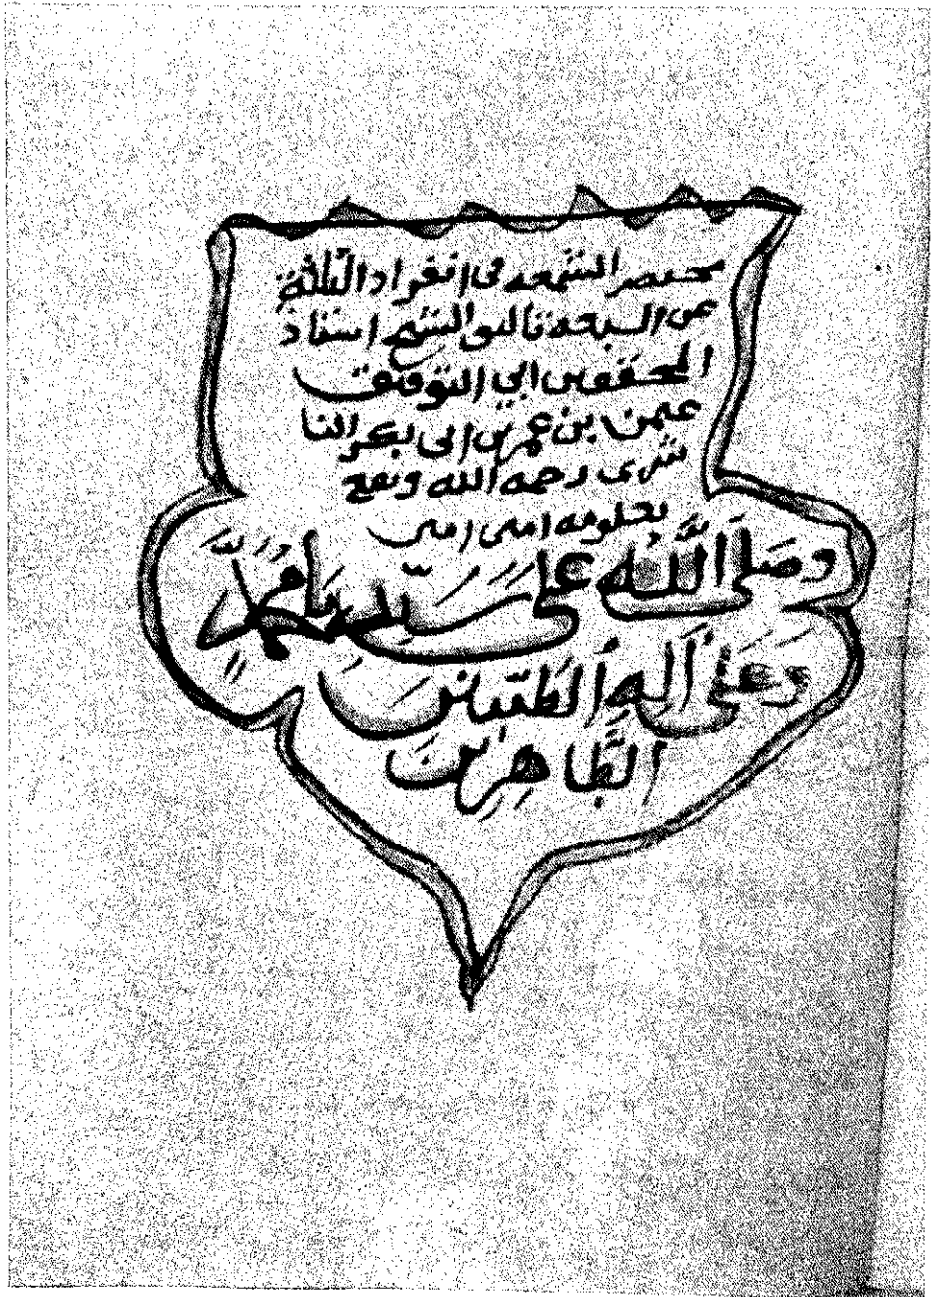 مختصر الشمعه في انفراد الثلثة
عن السبعه تاليف الشيخ استاذ
المحققين ابي التوفيق
عثمن بن عمر بن ابي بكر النا
شرى رحمه الله ونفع
بعلومه امين امين
وَصَلَّى اللَّهُ عَلَى سَيِّدِنَا مُحَمَّدٍ
وَعَلَى آلِهِ الطَّيِّبِينَ
الطَّاهِرِينَ